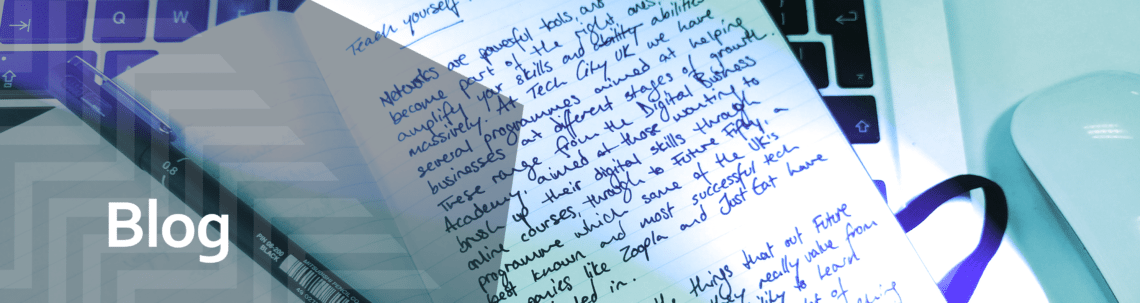 Teach yourself
Networks are powerful tools, and
become part of the right ones
amplify your skills and ability abilities
massively. At Tech City UK we have
several programmes aimed at helping
businesses at different stages of growth.
These range from the Digital Business
Academy, aimed at those wanting to
brush up their digital skills through
online courses, through to Future Fifty, a
programme which some of the UK's
best known and most successful tech
companies like Zoopla and Just Eat have
in.
the things that our Future
really value from
ability to learn
of
0.8
PIN 08-200
BLACK
Blog